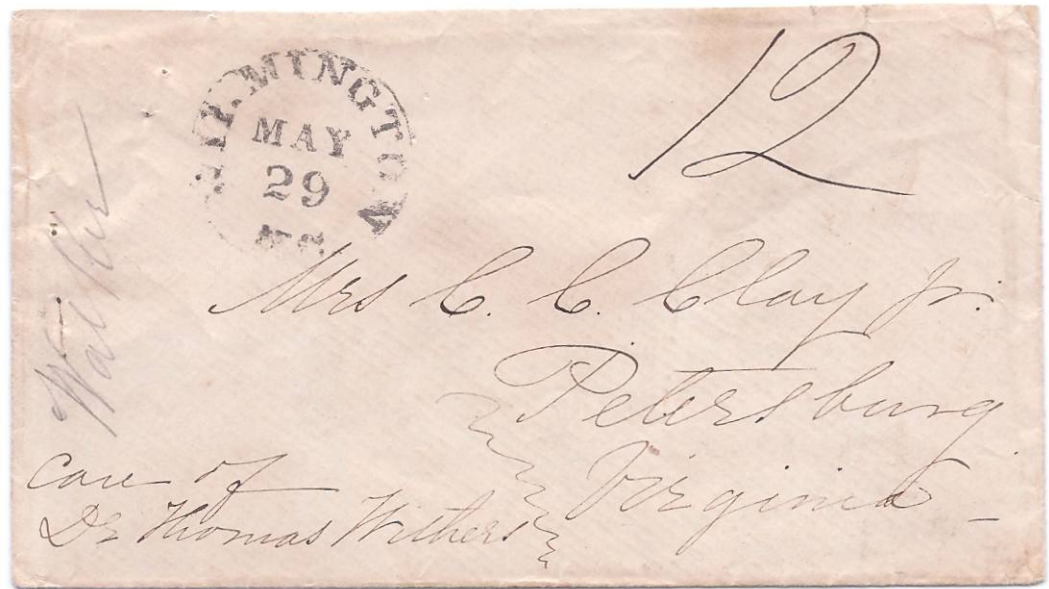 WILMINGTON
MAY
29
N.C.
12
Mrs C. C. Clay Jr.
Petersburg
Virginia –
care of
Dr Thomas Withers